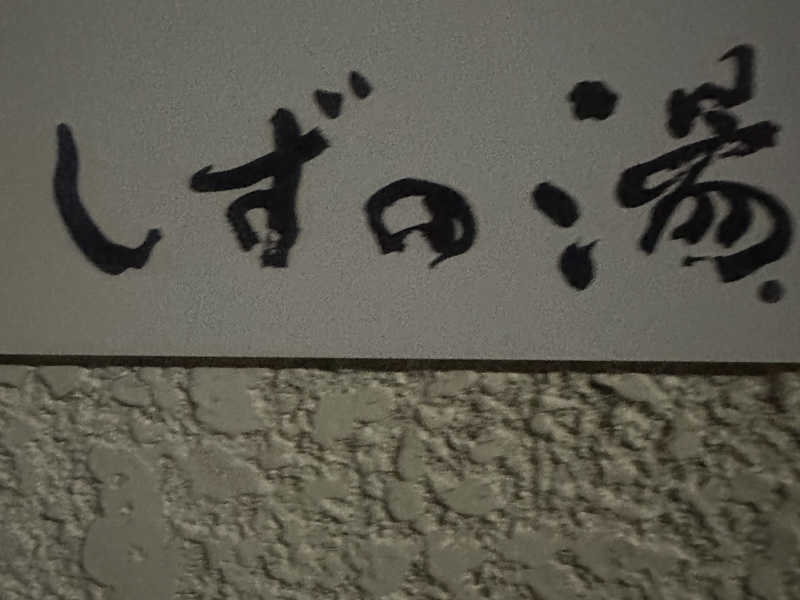 しずの湯